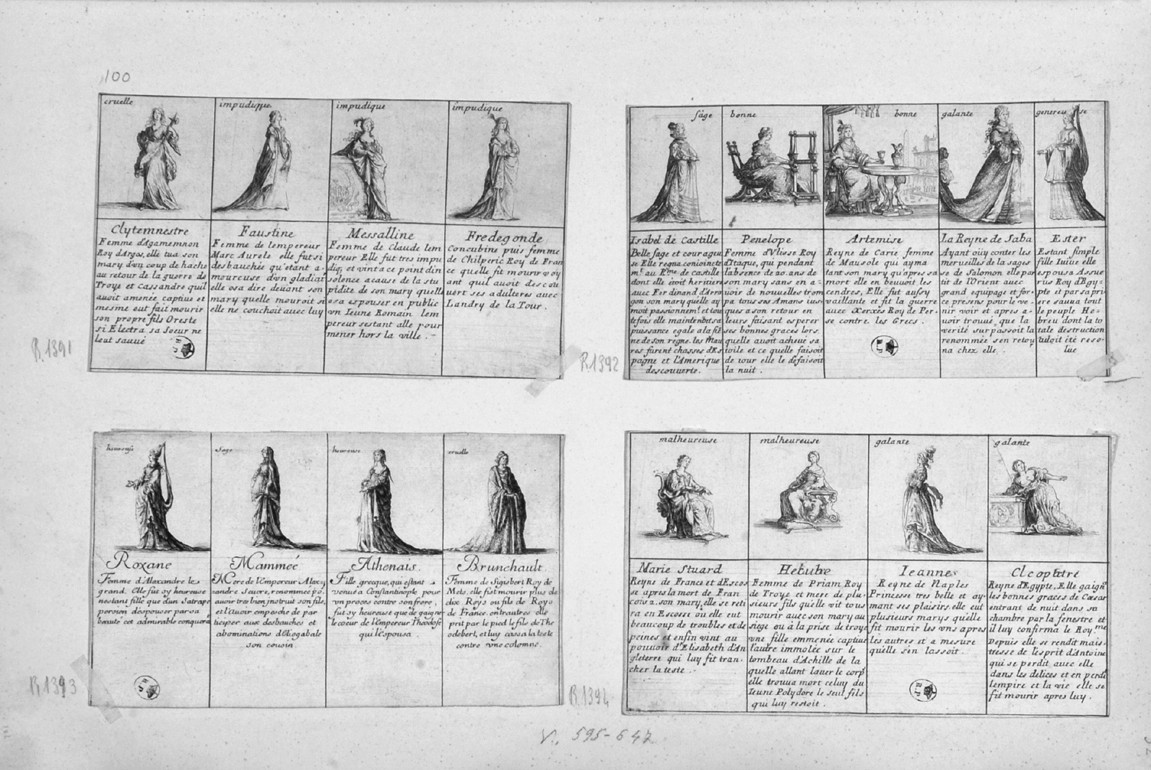 100
cruelle
Clytemnestre
Femme d'Agamemnon
Roy d'Argos, elle tua son
mary d'un coup de hache
au retour de la guerre de
Troye et Cassandre qu'il
avoit amenée captive et
mesme eut fait mourir
son propre fils Oreste
si Electra sa Soeur ne
leut sauué
impudique
Faustine
Femme de lempereur
Marc Aurele elle fut si
desbauchée qu'etant a-
moureuse d'un gladiat
elle osa dire deuant son
mary quelle mouroit si
elle ne couchoit avec luy
impudique
Messalline
Femme de Claude lem
pereur Elle fut tres impu
diq. et vint a ce point din
solence a cause de la stu
pidite de son mary quelle
osa espouser en public
vn Ieune Romain lem
pereur sestant alle pour
mener hors la ville.
impudique
Fredegonde
Concubine puis femme
de Chilperic Roy de Fran
ce quelle fit mourir voy
ant quil auoit descou
uert ses adulteres avec
Landry de la Tour.
R.1391
sage
Isabel de Castille
Belle sage et courageu
se Elle regna conioincte
mt. au Rme. de castille
dont elle etoit heritiere
avec Ferdinand d'Arra
gon son mary quelle ay
moit passionnemt. et tou
tefois elle maintint sa
puissance egale a la fie
ne de son regne, les Mau
res furent chassés d'Es
pagne et l'Amerique
descouverte.
bonne
Penelope
Femme d'Vlisse Roy
d'Itaque, qui pendant
labsence de 20. ans de
son mary sans en a
voir de nouvelles trom
pa tous ses Amans ius-
ques a son retour en
leurs faisant esperer
ses bonnes graces lors
quelle auoit acheue sa
toile et ce quelle faisoit
de iour elle le defaisoit
la nuit.
bonne
Artemise
Reyne de Carie femme
de Mausole qui ayma
tant son mary qu'apres sa
mort elle en beuuoit les
cendres, Elle fut aussy
vaillante et fit la guerre
avec Xerxés Roy de Per-
se contre les Grecs.
galante
La Reyne de Saba
Ayant ouy conter les
merueilles de la sages
se de Salomon elle par
tit de l'Orient avec
grand equipage et for-
ce presens pour le ve-
nir voir et apres a-
voir trouué que la
verité surpassoit la
renommée s'en retour
na chez elle.
genereuse
Ester
Estant simple
fille Iuiue elle
espousa Assue
rus Roy d'Egy-
pte et par sa prie
re sauua tout
le peuple He-
breu dont la to
tale destruction
auoit été reso-
lue
R.1392
heureuse
Roxane
Femme d'Alexandre le
grand. Elle fut sy heureuse
nestant fille que d'un Satrape
persien despouser par sa
beauté cet admirable conquerā
sage
Mammée
Mere de l'Empereur Alexa
andre Seuere, renommée po.
auoir tres bien instruit son fils,
et l'auoir empesché de par
ticiper aux desbauches et
abominations d'Eliogabale
son cousin
heureuse
Athenais
Fille greque, qui estant
venuë a Constantinople pour
vn proces contre son frere,
fut sy heureuse que de gaigner
le coeur de l'Empereur Theodose
qui l'espousa.
cruelle
Brunehault
Femme de Sigisbert Roy de
Mets, elle fit mourir plus de
dix Roys ou fils de Roys
de France,
prit par le pied le fils de The
odebert, et luy cassa la teste
contre vne colomne.
R.1393
malheureuse
Marie Stuard
Reyne de France et d'Escos
se apres la mort de Fran
cois 2. son mary, elle se reti
ra en Escosse ou elle eut
beaucoup de troubles et de
peines et enfin vint au
pouuoir d'Elisabeth d'An
gleterre qui luy fit tran
cher la teste.
malheureuse
Hekube
Femme de Priam Roy
de Troye et mere de plu
sieurs fils quelle vit tous
mourir auec son mary au
siege ou à la prise de troye
vne fille emmenée captiue
l'autre immolée sur le
tombeau d'Achille de la
quelle allant lauer le corps
elle trouua mort celuy du
Ieune Polydore le seul fils
qui luy restoit.
galante
Ieanne
Reyne de Naples
Princesse tres belle et ay
mant ses plaisirs, elle eut
plusieurs marys quelle
fit mourir les vns apres
les autres et a mesure
quelle s'en lassoit.
galante
Cleopatre
Reyne d'Egypte, Elle gaigna
les bonnes graces de Caesar
entrant de nuit dans sa
chambre par la fenestre et
il luy confirma le Roy.me
Depuis elle se rendit mais-
tresse de l'esprit d'Antoine
qui se perdit avec elle
dans les delices et en perdit
lempire et la vie elle se
fit mourir apres luy.
R.1394
V. 595-647